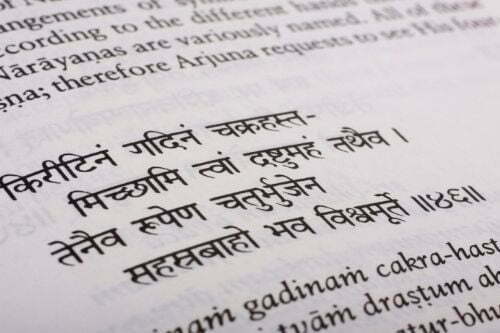 angements of symbols
ccording to the different hands
Nārāyaṇas are variously named. All of these
ṣṇa; therefore Arjuna requests to see His four
किरीटिनं गदिनं चक्रहस्त-
मिच्छामि त्वां द्रष्टुमहं तथैव ।
तेनैव रूपेण चतुर्भुजेन
सहस्रबाहो भव विश्वमूर्ते ॥४६॥
inaṁ gadinaṁ cakra-hast
tvāṁ draṣṭum a
ūr-bhu